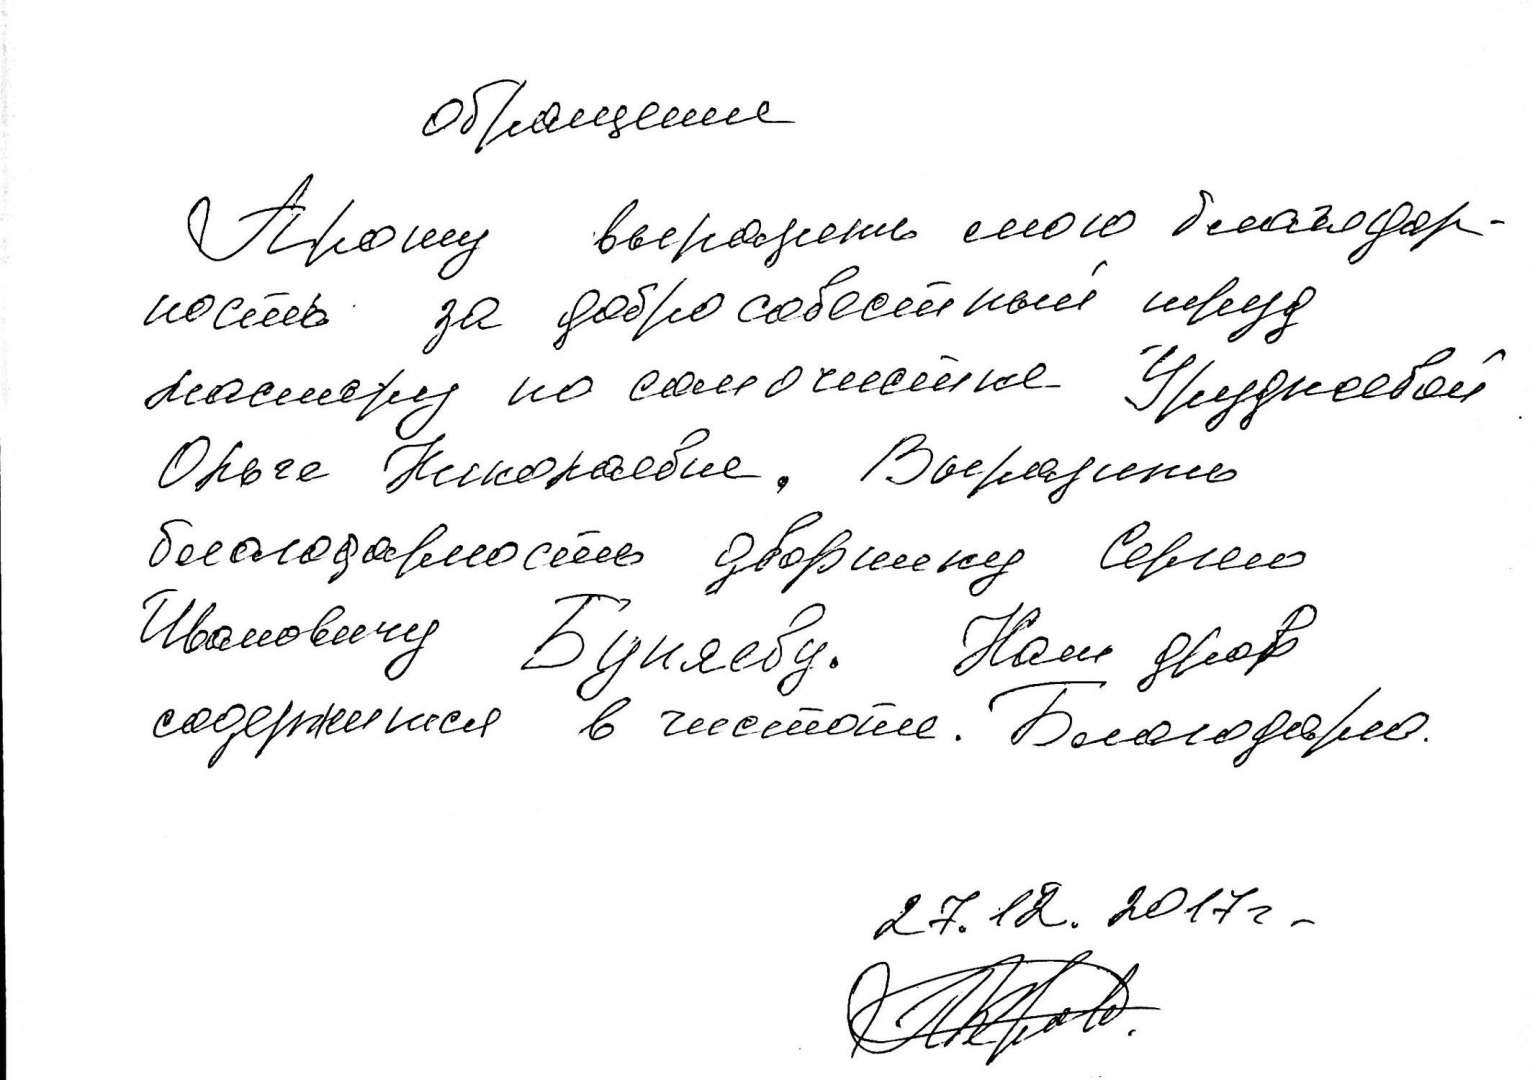 обращение
Прошу выразить мою благодар-
ность за добросовестный труд
мастеру по самоочистке
Ольге Николаевне. Выразить
благодарность дворнику Сергею
Ивановичу Буняеву. Наш двор
содержится в чистоте. Благодарю.
27.12.2017г.